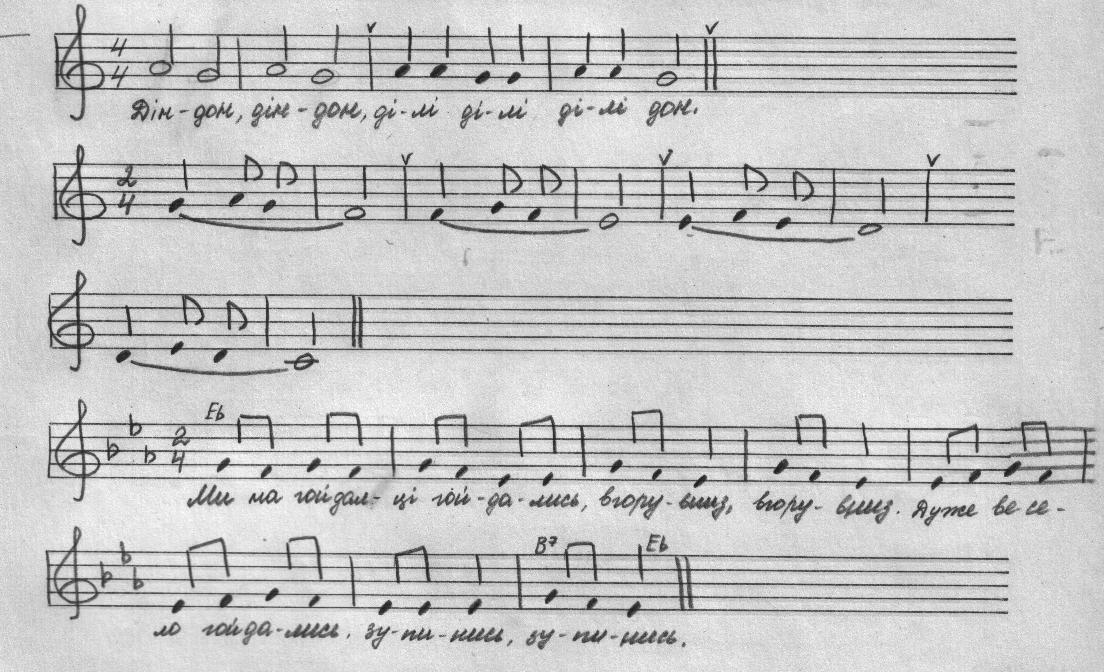 4 4
Дін-дон, дін-дон, ді-лі ді-лі ді-лі дон.
2 4
Eb
2 4
Ми на гойдал-ці гой-да-лись, вгору-вниз, вгору-вниз. Дуже ве-се-
B7 Eb
ло гойда-лись. зу-пи-нись, зу-пи-нись.